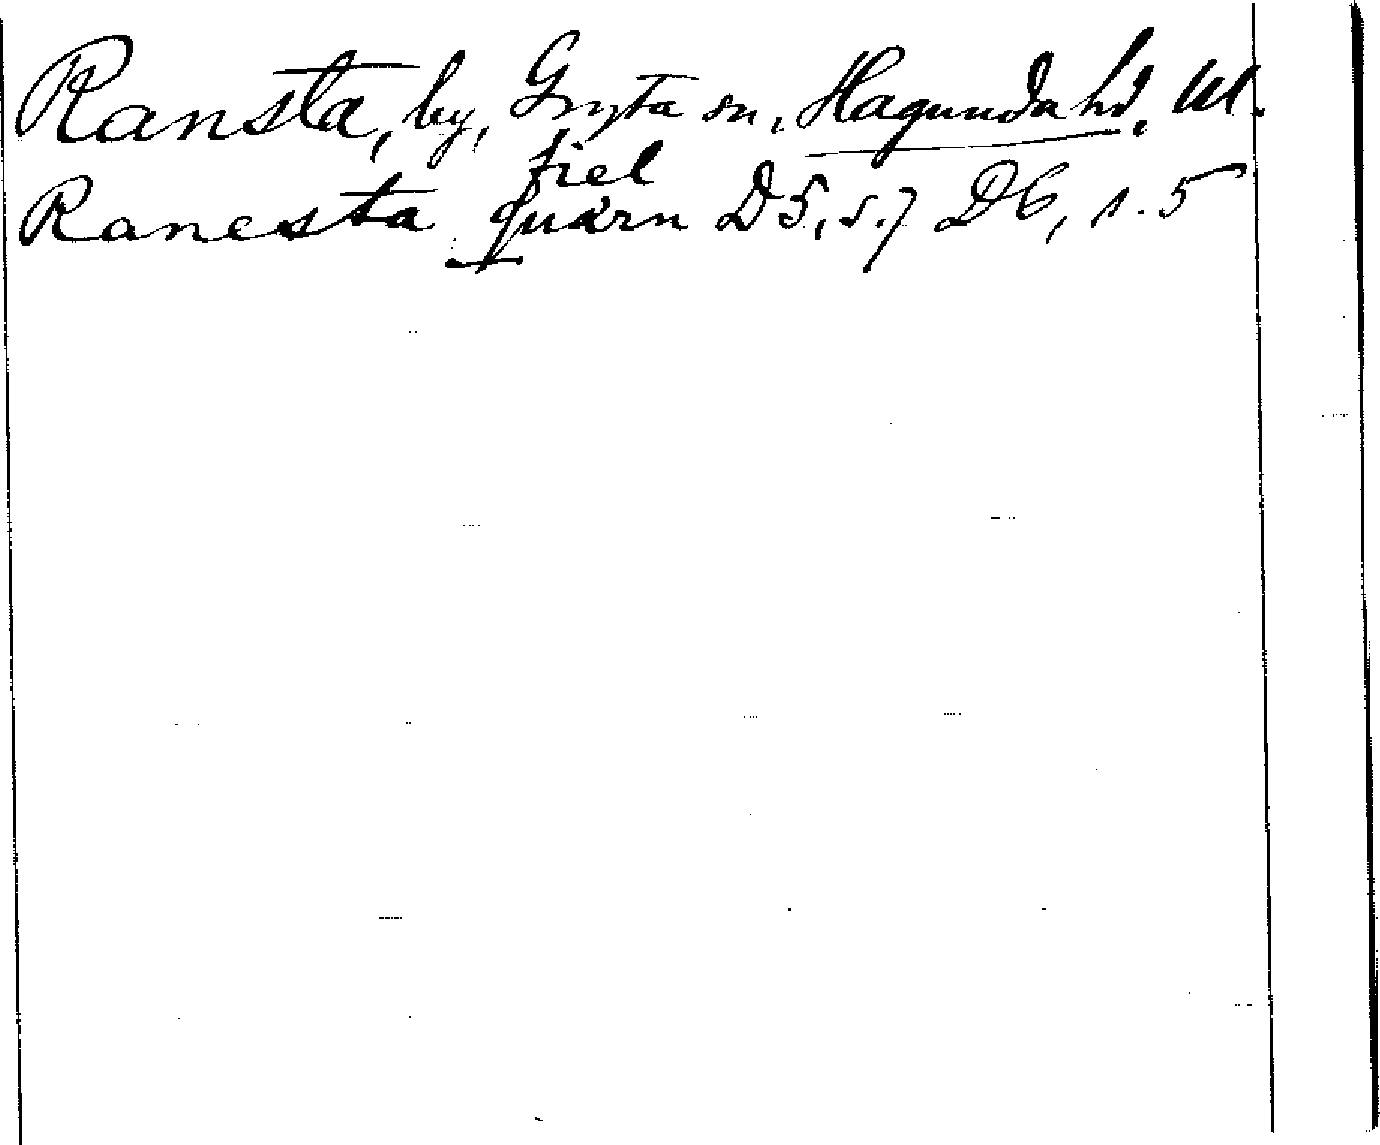 Ransta, by, Gryta sn, Hagunda hd, Ul.
fiel
Ranesta quärn D5, s.7 D6, s.5